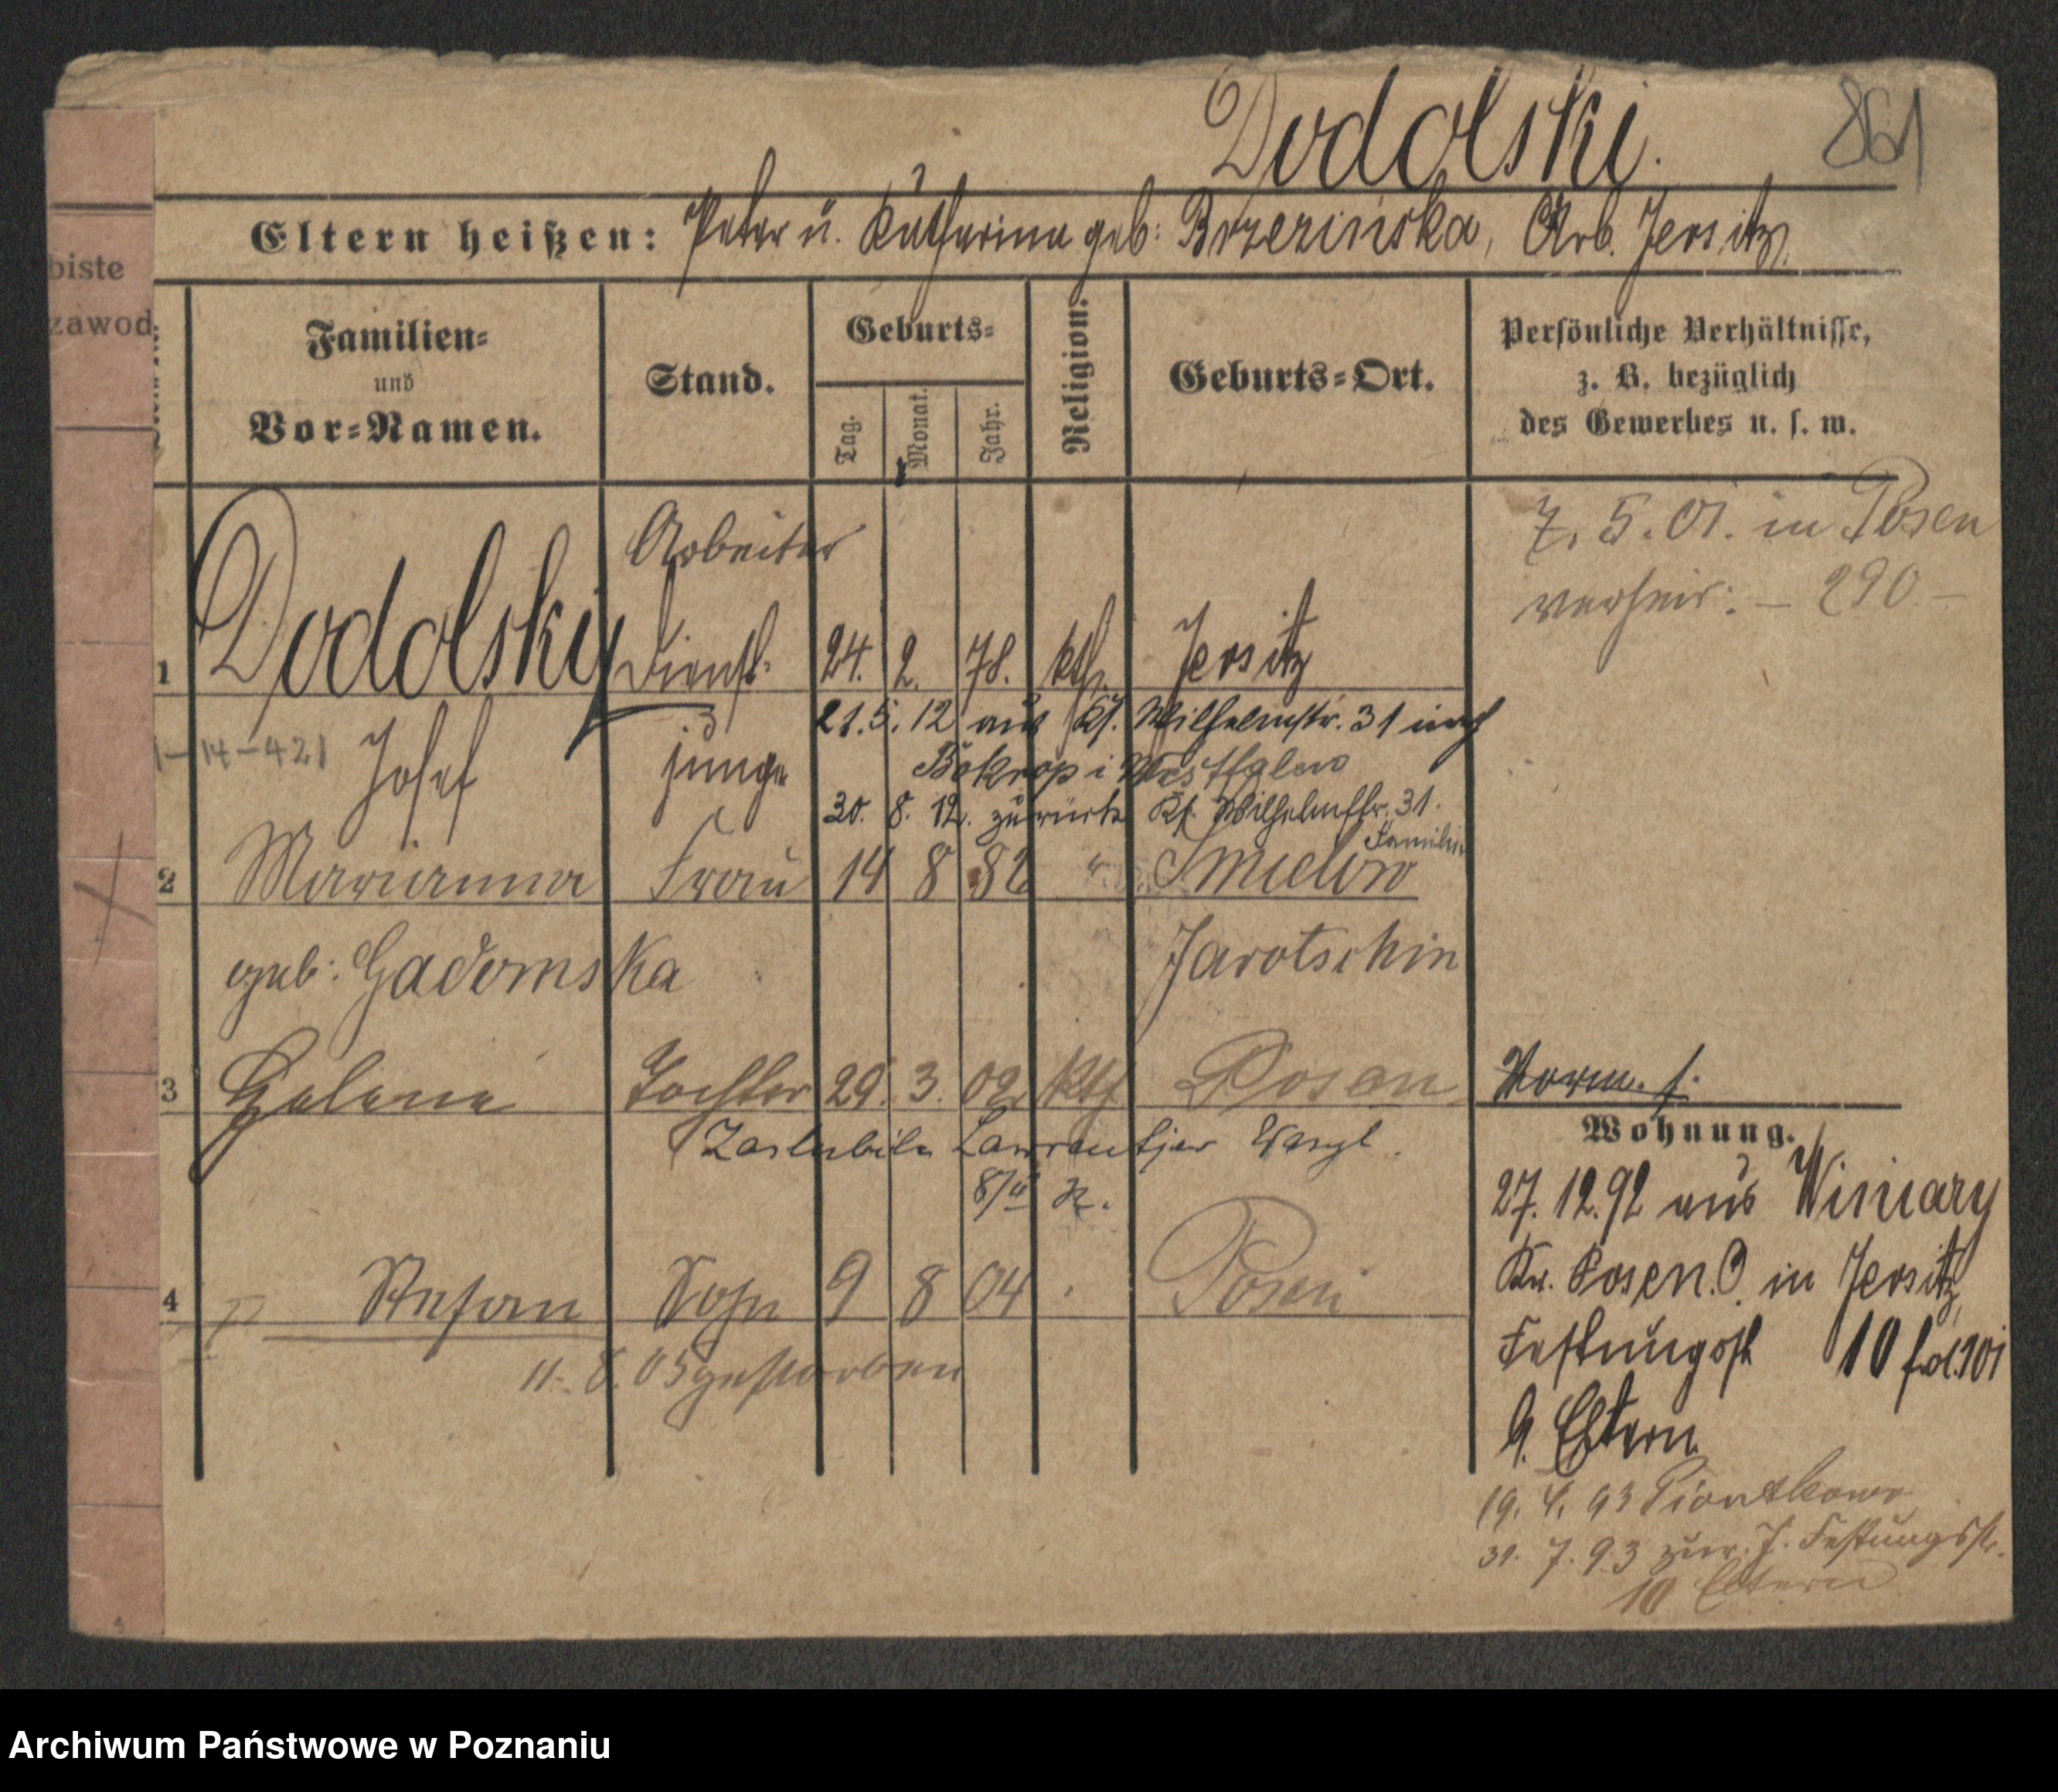 Dodolski.
861
Eltern heißen: Peter u. Katharina geb: Brzezińska, Arb. Jersitz.
biste
zawod
Familien=
und
Vor=Namen.
Stand.
Geburts=
Tag.
Monat.
Jahr.
Religion.
Geburts=Ort.
Persönliche Verhältnisse,
z. B. bezüglich
des Gewerbes u. s. w.
7. 5. 01. in Posen
verheir: – 290 –
Arbeiter
1 Dodolski Dienst- 24. 2. 78. kth. Jersitz
21.5.12 aus Kl. Wilhelmstr. 31 nach
1–14–421 Josef junge
Bokrop i Westfalen
30. 8. 12. zurück Kl. Wilhelmstr. 31.
Familie
2 Marianna Frau 14 8 82 " Smielow
geb: Gadomska Jarotschin
3 Helene Tochter 29. 3. 02. kth. Posen
Lawrentjew
4 Stefan Sohn 9 8 04 Posen
11. 8. 05 gestorben
Wohnung.
27. 12. 92 aus Winiary
Kr. Posen O. in Jersitz
Festungsst 10 fol. 101
b. Eltern
19. 4. 93 Piontkowo
31. 7. 93 zur. J. Festungsstr.
10 Eltern